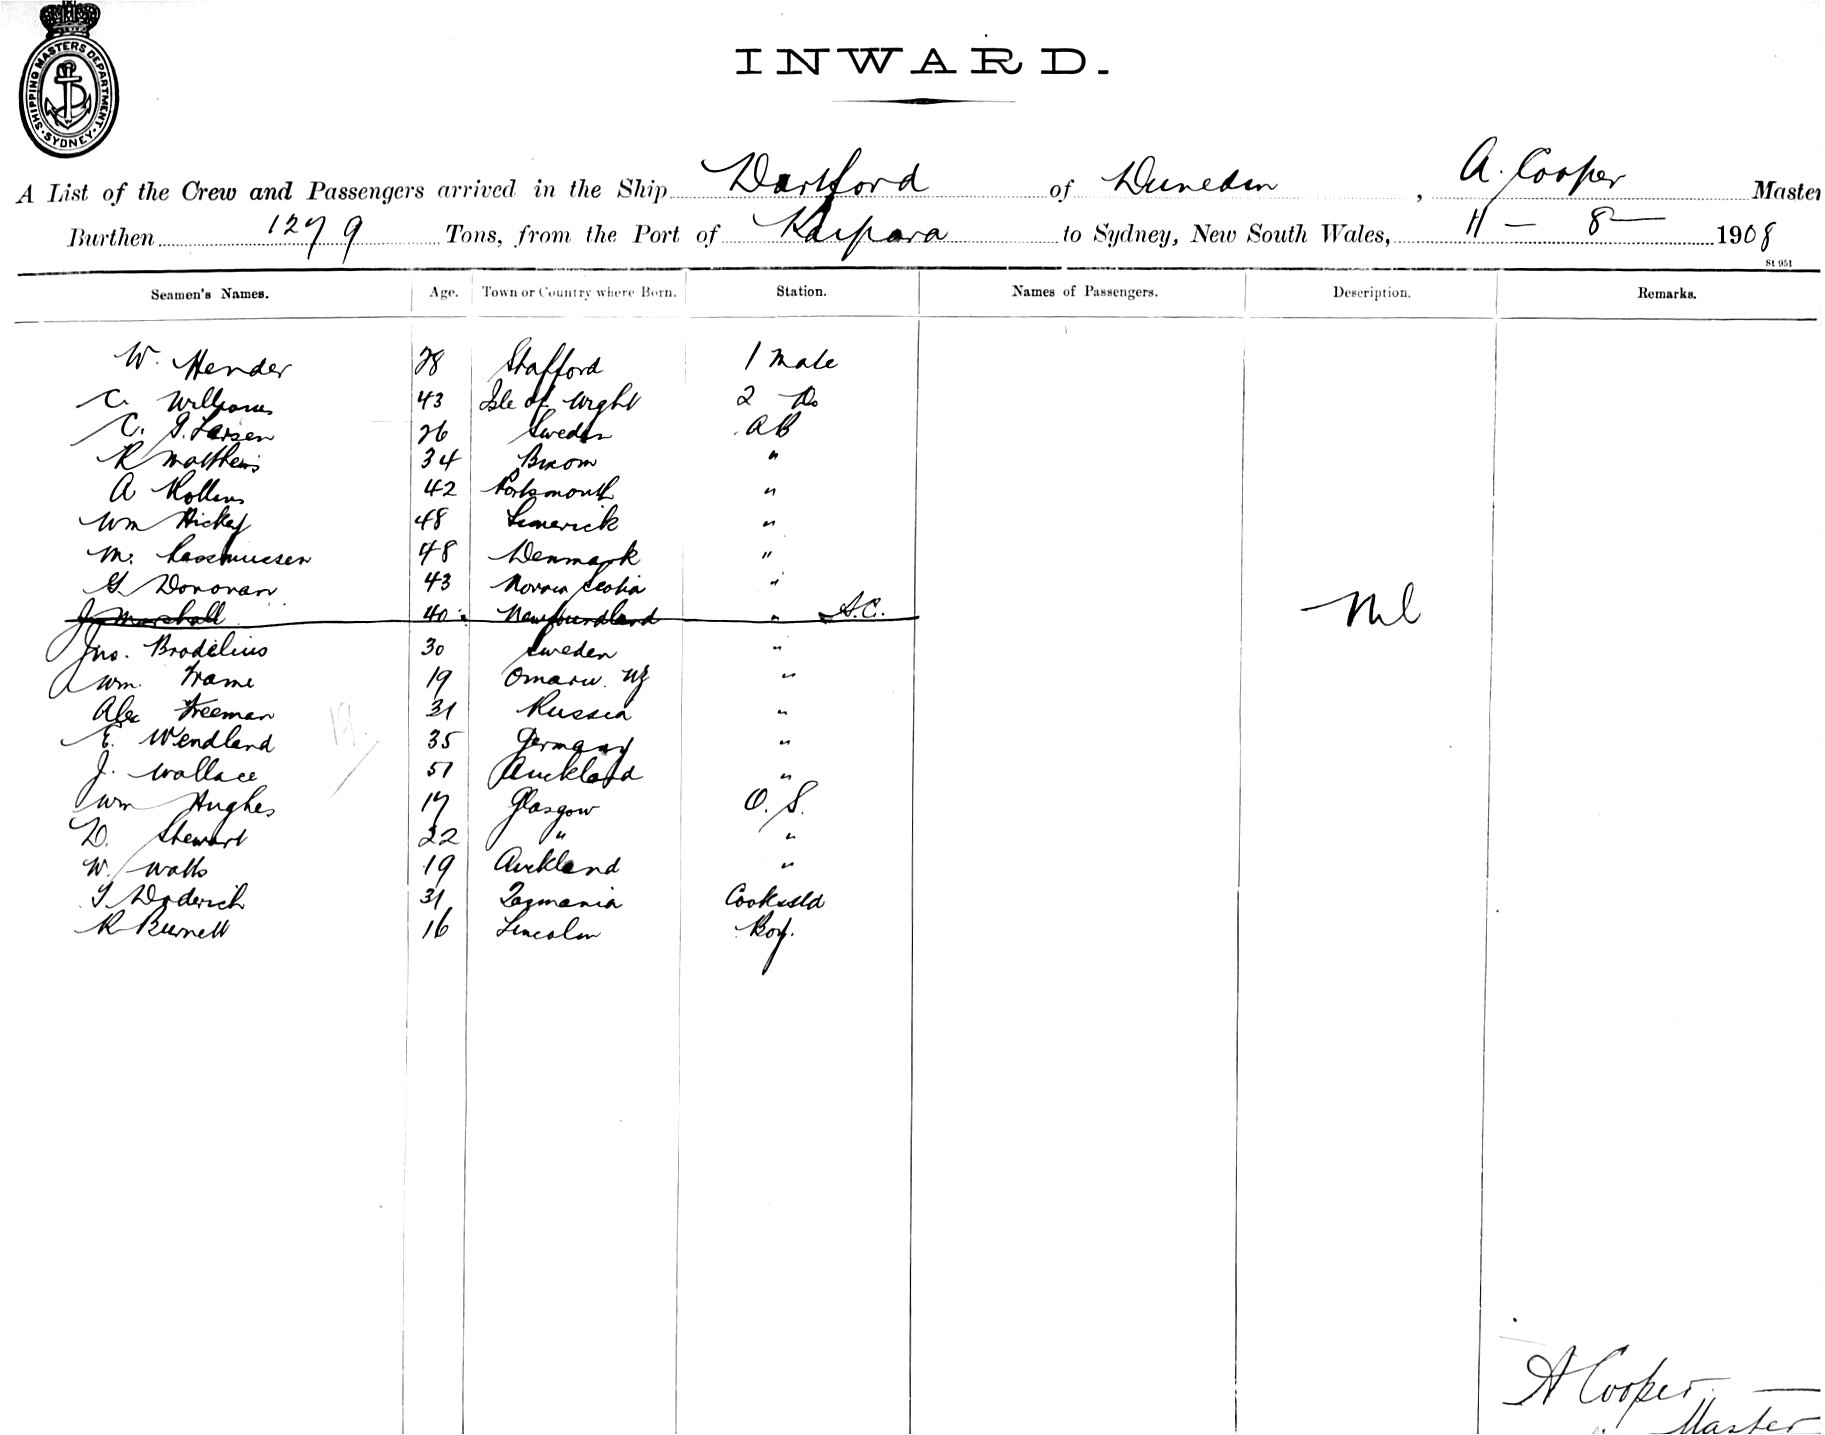 SHIPPING MASTERS DEPARTMENT · SYDNEY ·
INWARD.
A List of the Crew and Passengers arrived in the Ship Dartford of Dunedin, A. Cooper Master
Burthen 1279 Tons, from the Port of Kaipara to Sydney, New South Wales, 11 - 8 1908
St 951
Seamen's Names. Age. Town or Country where Born. Station. Names of Passengers. Description. Remarks.
W. Hender 28 Stafford 1 Mate
C. Williams 43 Isle of Wight 2 Do
C. G. Larsen 26 Sweden AB
R Matthews 34 "
A Rollins 42 Portsmouth "
Wm Hickey 48 Limerick "
M. Rasmussen 48 Denmark "
G Donovan 43 Novia Scotia "
J Marshall 40 Newfoundland " A.C. Nil
Jno. Brodelius 30 Sweden "
Wm. Frame 19 Omaru NZ "
Alex Freeman 31 Russia "
E. Wendland 35 Germany "
J. Wallace 51 Auckland "
Wm Hughes 17 Glasgow O.S.
D. Stewart 22 " "
W. Watts 19 Auckland "
31 Tasmania Cook & Std
R Burnett 16 Lincoln Boy.
A Cooper
Master